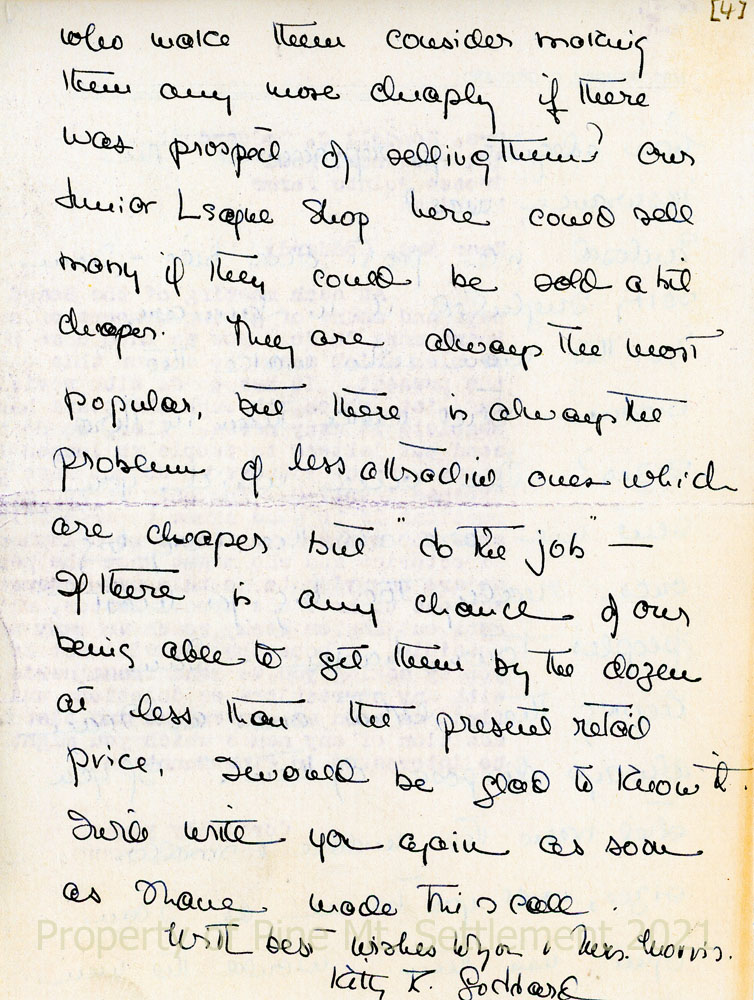 [4]
who make them consider making
them any more cheaply if there
was prospect of selling them? Our
Junior League Shop here could sell
many if they could be sold a bit
cheaper. They are always the most
popular, but there is always the
problem of less attractive ones which
are cheaper but "do the job" —
If there is any chance of our
being able to get them by the dozen
at less than the present retail
price, I would be glad to know it.
I will write you again as soon
as I have made this call.
With best wishes to you & Mrs. Morris.
Kitty K. Goddard
Property of Pine Mt. Settlement 2021